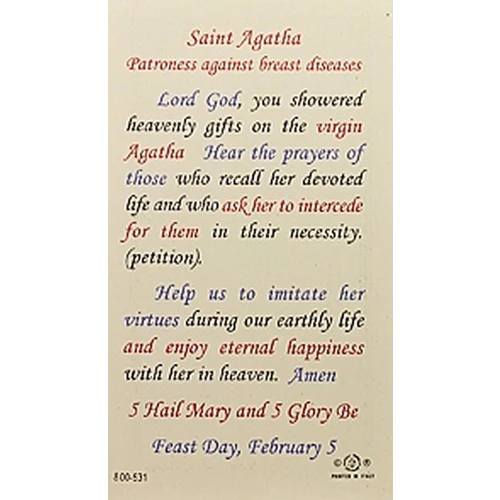 Saint Agatha
Patroness against breast diseases
Lord God, you showered
heavenly gifts on the virgin
Agatha Hear the prayers of
those who recall her devoted
life and who ask her to intercede
for them in their necessity.
(petition).
Help us to imitate her
virtues during our earthly life
and enjoy eternal happiness
with her in heaven. Amen
5 Hail Mary and 5 Glory Be
Feast Day, February 5
800-531
© ®
PRINTED IN ITALY